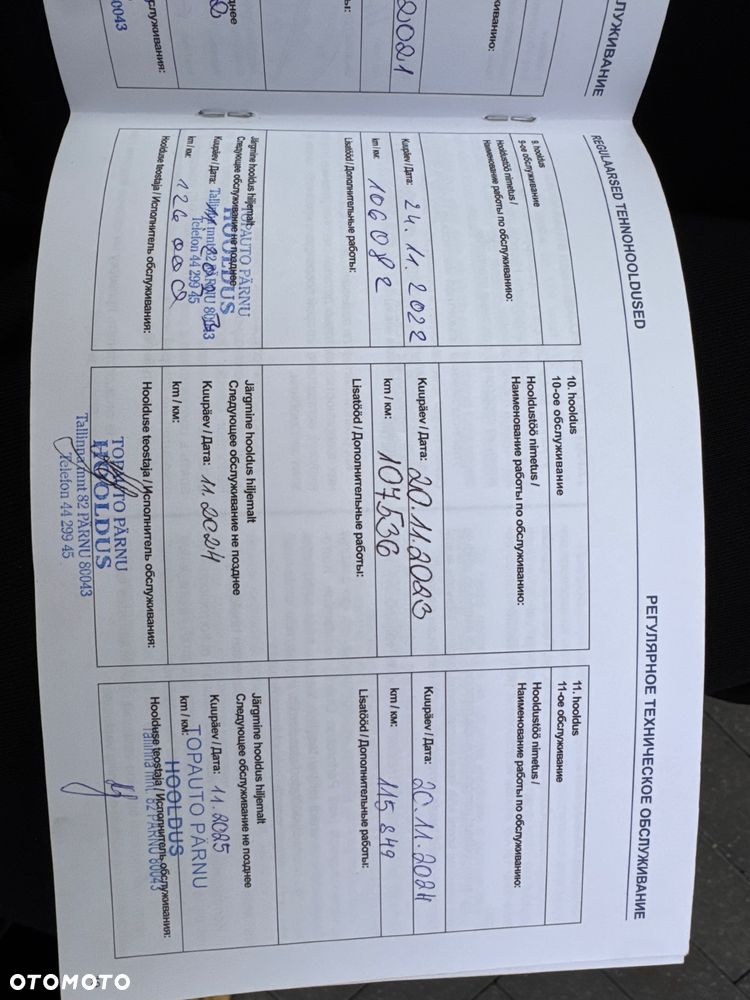 ЛУЖИВАНИЕ
2021
80043
REGULAARSED TEHNOHOOLDUSED
РЕГУЛЯРНОЕ ТЕХНИЧЕСКОЕ ОБСЛУЖИВАНИЕ
9. hooldus
9-ое обслуживание
Hooldustöö nimetus /
Наименование работы по обслуживанию:
Kuupäev / Дата: 24.11.2022
km / км: 106082
Lisatööd / Дополнительные работы:
Järgmine hooldus hiljemalt
Следующее обслуживание не позднее
Kuupäev / Дата:
km / км: 126 000
Hoolduse teostaja / Исполнитель обслуживания:
TOPAUTO PÄRNU
HOOLDUS
Tallinna mnt. 82 PÄRNU 80043
Telefon 44 299 45
10. hooldus
10-ое обслуживание
Hooldustöö nimetus /
Наименование работы по обслуживанию:
Kuupäev / Дата: 20.11.2023
km / км: 107536
Lisatööd / Дополнительные работы:
Järgmine hooldus hiljemalt
Следующее обслуживание не позднее
Kuupäev / Дата: 11.2024
km / км:
Hoolduse teostaja / Исполнитель обслуживания:
TOPAUTO PÄRNU
HOOLDUS
Tallinna mnt. 82 PÄRNU 80043
Telefon 44 299 45
11. hooldus
11-ое обслуживание
Hooldustöö nimetus /
Наименование работы по обслуживанию:
Kuupäev / Дата: 20.11.2024
km / км: 115 849
Lisatööd / Дополнительные работы:
Järgmine hooldus hiljemalt
Следующее обслуживание не позднее
Kuupäev / Дата: 11.2025
km / км:
Hoolduse teostaja / Исполнитель обслуживания:
TOPAUTO PÄRNU
HOOLDUS
Tallinna mnt. 82 PÄRNU 80043
OTOMOTO